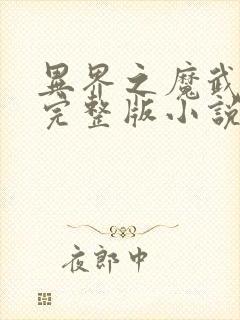 異界之魔武
完整版小說
夜郎中